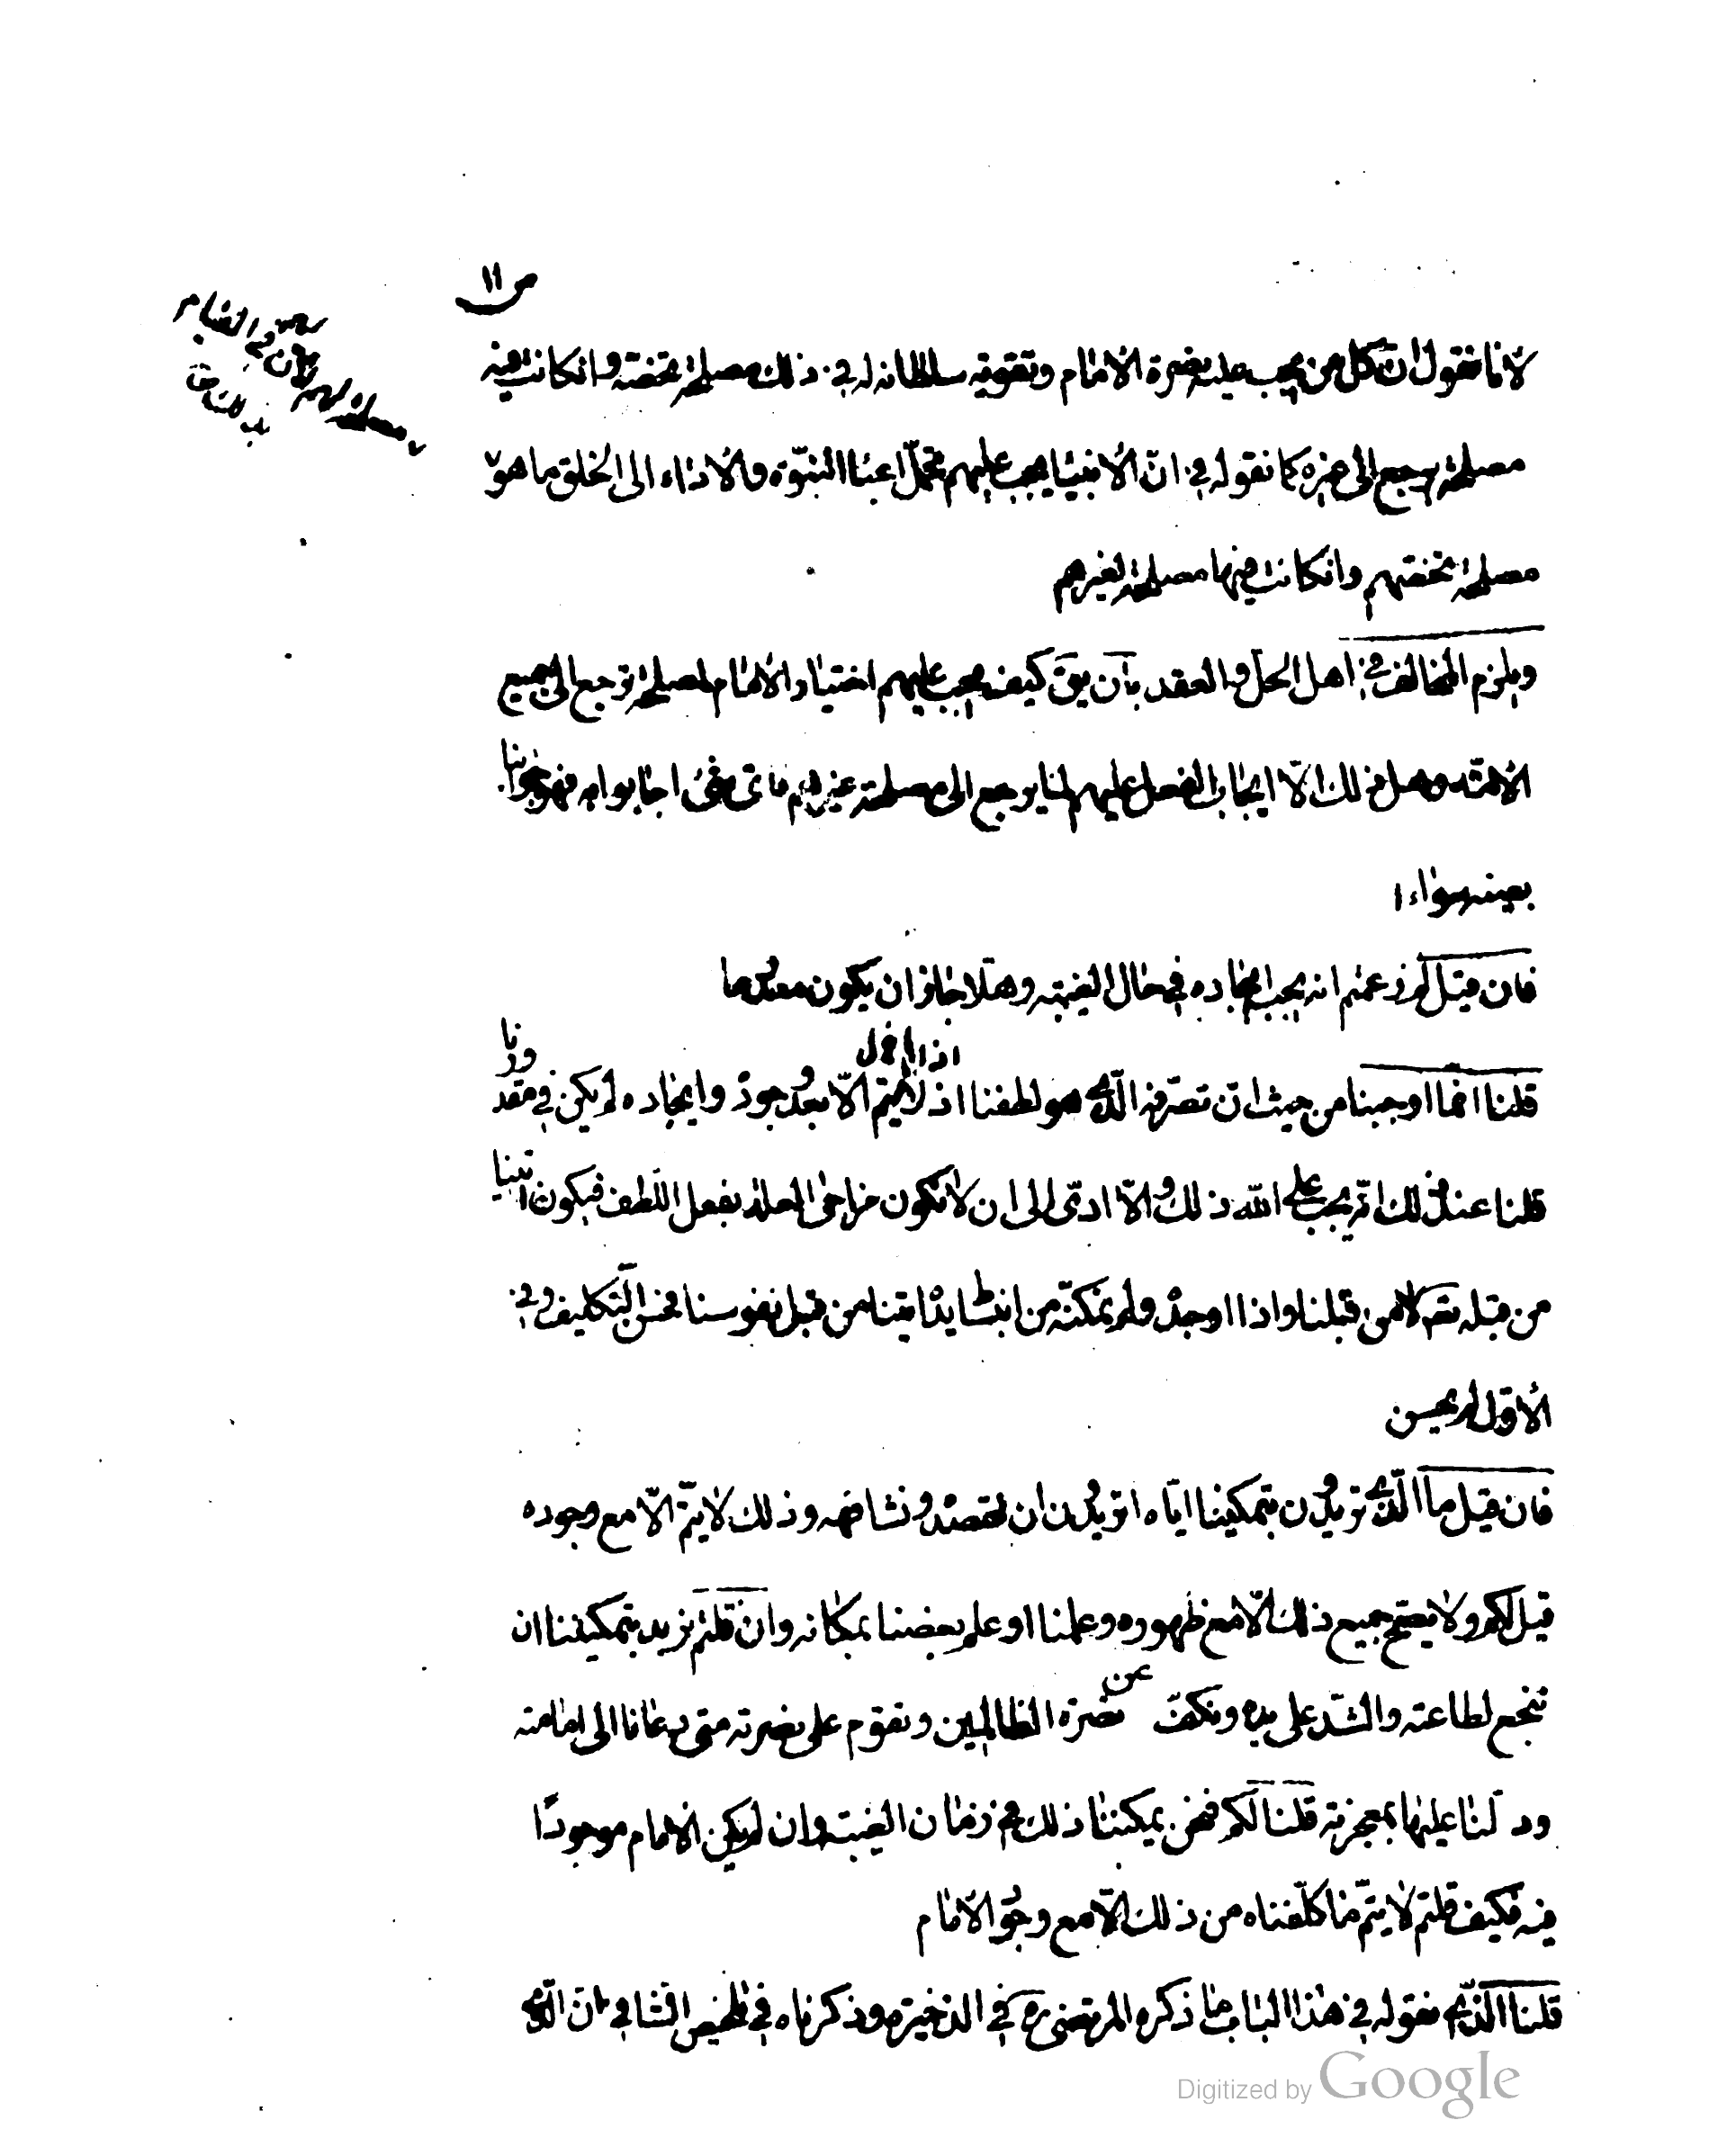 ص ١١
لأنا نقول ان كل من يجب عليه نصرة الأمام وتقوية سلطانه له في ذلك مصلحة تخصّه وانكانت فيه
مصلحة يرجع إلى غيره كما نقوله في انّ الأنبيٰا يجب عليهم تحمّل اعبٰا النبّوة والأدٰاء الى الخلق ما هو
مصلحة تخصّهم وانكانت فيها مصلحة لغيرهم
ويلزم المخالف في اهل الحلّ والعقد بأن يق كيف يجب عليهم اختيٰار الأمٰام لمصلحة ترجع إلى جميع
الأمّة وهل ذلك الّا ايجٰاب الفعل عليهم لمٰا يرجع إلى مصلحة غيرهم فأىّ شئ اجٰابوا به فهو جوابنا
بعينه سوٰاء
فان قيل لم زعمتم انه يجب ايجٰاده في حٰال الغيبة وهلّا جٰاز ان يكون معدوما
قلنا انما اوجبنا من حيث ان تصرّفه الّذي هو لطفنا اذا لم يتم الّا بعد وجوده وايجٰاده لم يكن في مقدورنا
قلنا عند ذلك انّه يجب على الله ذلك والّا ادّى إلى ان لا نكون مزاحى العلة بفعل اللّطف فيكون اتينا
من قبله تعٰ لا من قبلنا واذا اوجده ولم نمكنّه من انبسٰاط يده اتينا من قبل نفوسنا فحسن التّكليف وفي
الأوّل لم يحسن
فان قيل ما الّذي تريدون بتمكيننا ايّاه اتريدون ان نقصده ونشافهه وذلك لٰا يتمّ الّا مع وجوده
قيل لكم ولا يصّح جميع ذلك الّا مع ظهوره وعلمنا او علم بعضنا بمكٰانه وان قلتم نريد بتمكيننا ان
نبخع لطاعته والشّد على يده ونكفّ عن نصرة الظالمين ونقوم على نصرته متى دعٰانا الى امٰامته
ودلّنا عليهٰا بمعجزته قلنا لكم فنحن يمكننٰا ذلك في زمٰان الغيبة وان لم يكن الأمام موجودًا
فيه فكيف قلتم لا يتمّ مٰا كلّفناه من ذلك الّا مع وجود الأمٰام
قلنا الّذي نقوله في هٰذا البٰاب مٰا ذكره المرتضى ره في الذخيرة وذكرناه في تلخيص الشٰافي انّ الّذي